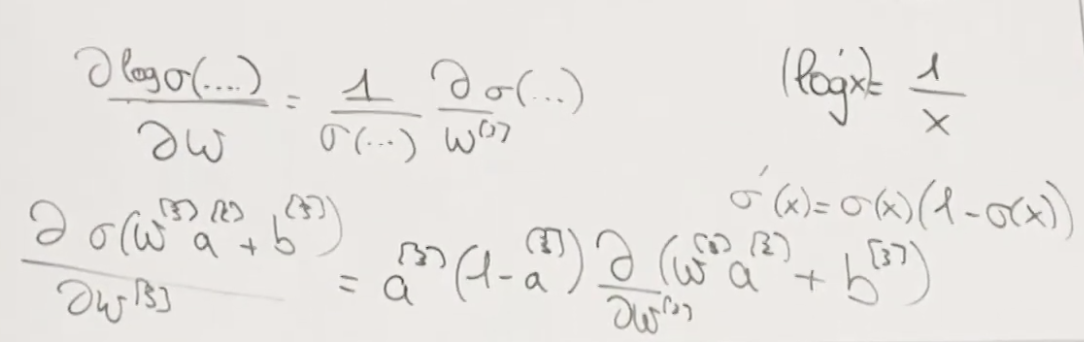 ∂ log σ(....) / ∂w = 1 / σ(...) ∂ σ(...) / w^[3]
(log'x) = 1 / x
σ'(x) = σ(x)(1 - σ(x))
∂ σ(w^[3] a^[2] + b^[3]) / ∂w^[3] = a^[3] (1 - a^[3]) ∂ / ∂w^[3] (w^[3] a^[2] + b^[3])